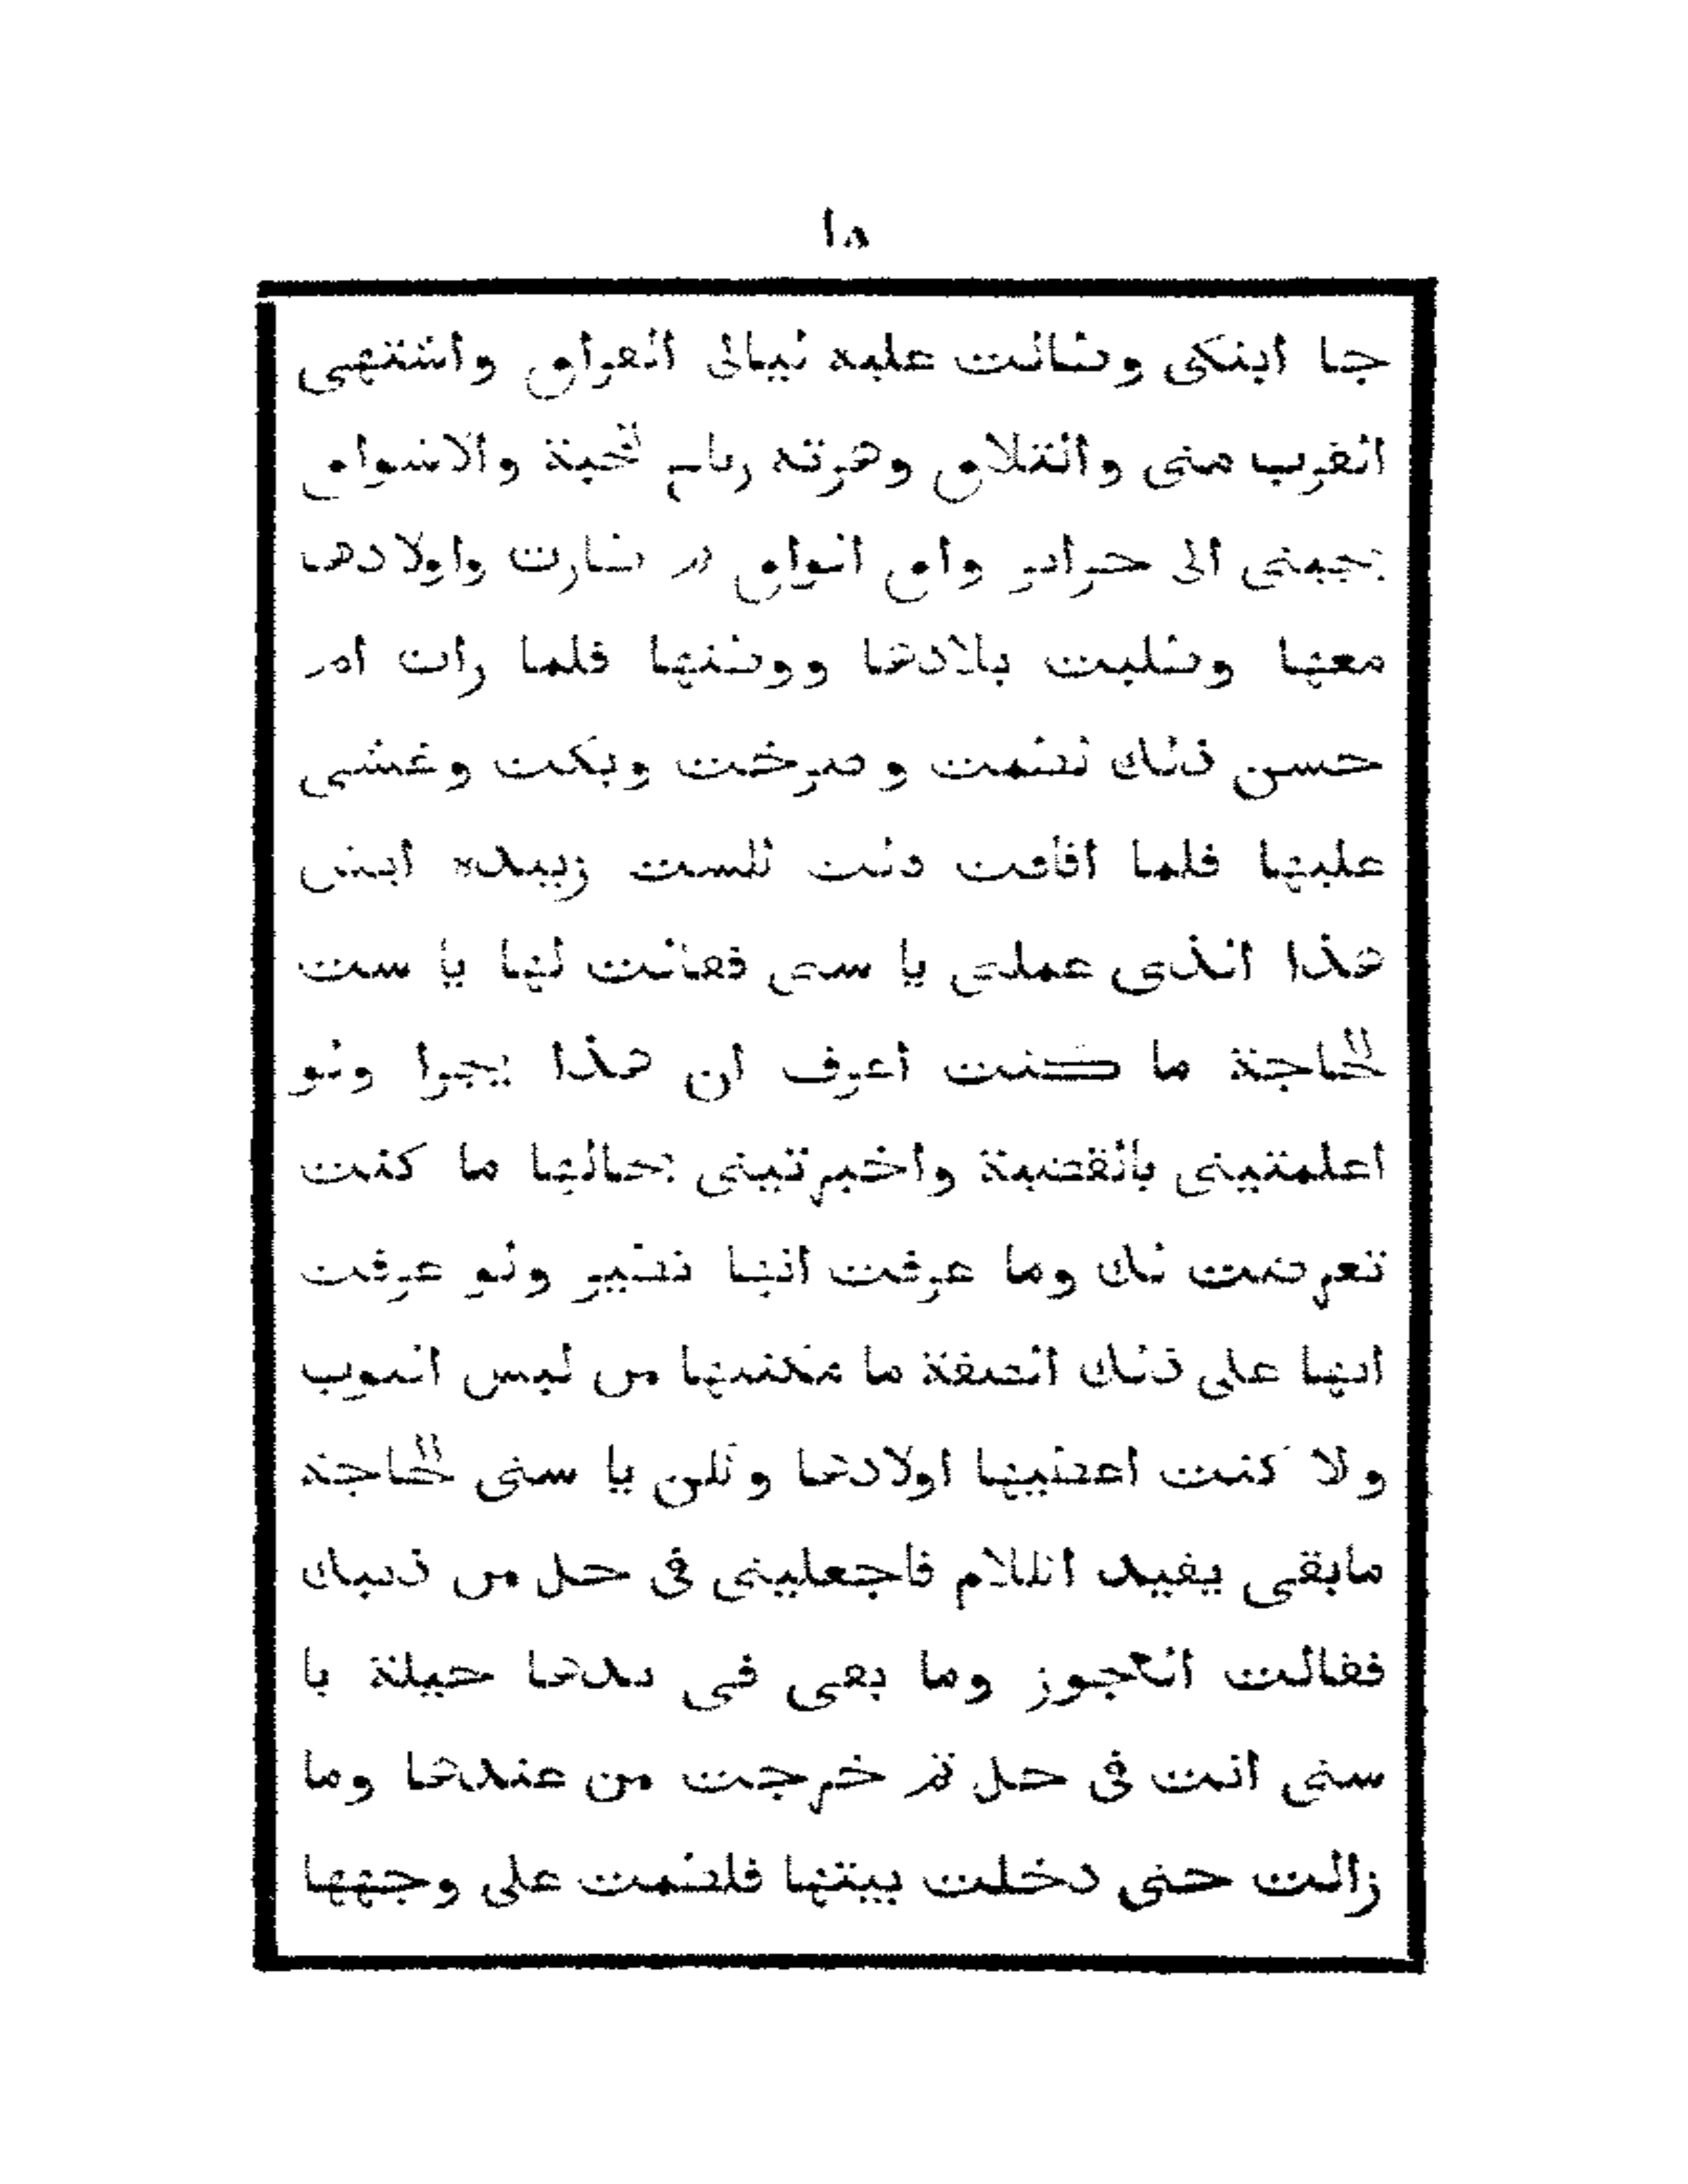 ١٨
جا ابنكى وطالت عليه ليالى الفراق واشتهى
القرب منى والتلاق وهزته رياح المحبة والاشواق
يجينى الى جزاير واق الواق ثم طارت واولادها
معها وطلبت بلادها ووطنها فلما رات ام
حسن ذلك لطمت وصرخت وبكت وغشى
عليها فلما افاقت قالت للست زبيده ايش
هذا الذى عملتى يا ستى فقالت لها يا ست
الحاجة ما كنت اعرف ان هذا يجرا ولو
اعلمتينى بالقضية واخبرتينى بحالها ما كنت
تعرضت لك وما عرفت انها تطير ولو عرفت
انها على ذلك الصفة ما مكنتها من لبس الثوب
ولا كنت اعطيها اولادها ولكن يا ستى الحاجة
مابقى يفيد الكلام فاجعلينى فى حل من ذنبك
فقالت العجوز وما بقى فى يدها حيلة يا
ستى انت فى حل ثم خرجت من عندها وما
زالت حتى دخلت بيتها فلطمت على وجهها